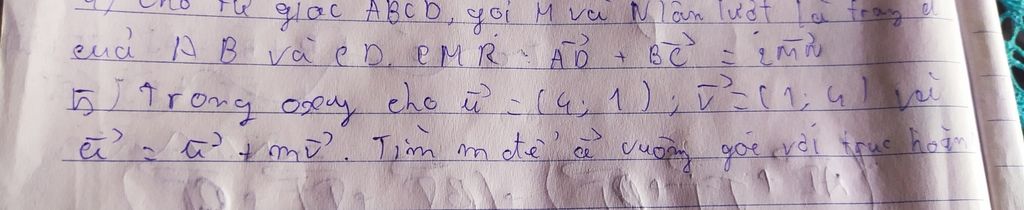 a) Cho tứ giác ABCD, gọi M và N lần lượt là trung đ
cuả AB và CD. CMR: AD⃗ + BC⃗ = 2MN⃗
b) Trong oxy cho u⃗ = (4; 1); v⃗ = (1; 4) và
a⃗ = u⃗ + mv⃗. Tìm m để a⃗ vuông góc với trục hoàn